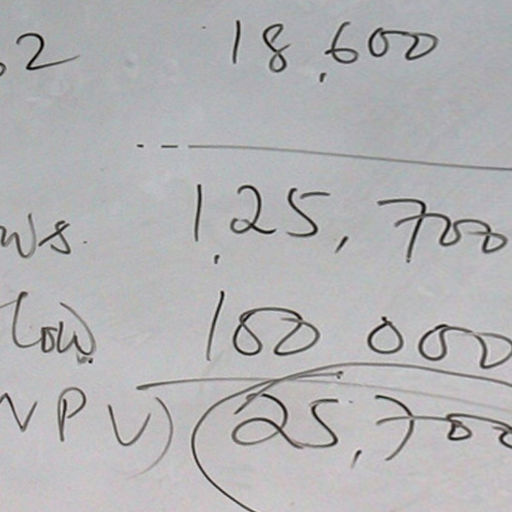 .2 18,600
ws. 1,25,700
low. 100 000
NPV) 25,700